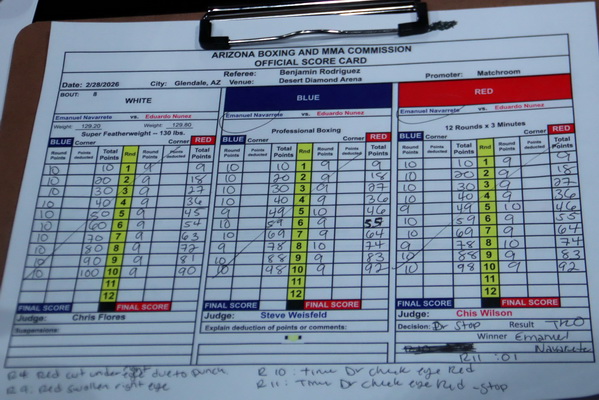 ARIZONA BOXING AND MMA COMMISSION
OFFICIAL SCORE CARD
Referee: Benjamin Rodriguez Promoter: Matchroom
Date: 2/28/2026 City: Glendale, AZ Venue: Desert Diamond Arena
BOUT: 8
WHITE BLUE RED
Emanuel Navarrete vs. Eduardo Nunez Emanuel Navarrete vs. Eduardo Nunez Emanuel Navarrete vs. Eduardo Nunez
Weight: 129.20 Weight: 129.80
Super Featherweight -- 130 lbs. Professional Boxing 12 Rounds x 3 Minutes
BLUE Corner Corner RED BLUE Corner Corner RED BLUE Corner Corner RED
Round Points Points deducted Total Points Rnd Round Points Points deducted Total Points Round Points Points deducted Total Points Rnd Round Points Points deducted Total Points Round Points Points deducted Total Points Rnd Round Points Points deducted Total Points
10 10 1 9 9 10 10 1 9 9 10 10 1 9 9
10 20 2 9 18 10 20 2 9 18 10 20 2 9 18
10 30 3 9 27 10 30 3 9 27 10 30 3 9 27
10 40 4 9 36 10 40 4 9 36 10 40 4 9 36
10 50 5 9 45 9 49 5 10 46 9 49 5 10 46
10 60 6 9 54 10 59 6 9 55 10 59 6 9 55
10 70 7 9 63 10 69 7 9 64 10 69 7 9 64
10 80 8 9 72 9 78 8 10 74 9 78 8 10 74
10 90 9 9 81 10 88 9 9 83 10 88 9 9 83
10 100 10 9 90 10 98 10 9 92 10 98 10 9 92
11 11 11
12 12 12
FINAL SCORE FINAL SCORE FINAL SCORE FINAL SCORE FINAL SCORE FINAL SCORE
Judge: Chris Flores Judge: Steve Weisfeld Judge: Chis Wilson
Suspensions: Explain deduction of points or comments: Decision: Dr Stop Result TKO
Winner Emanuel
Navarrete
R11 :01
R4: Red cut under right eye due to punch
R9: Red swollen right eye
R10: Time Dr check eye Red
R11: Time Dr check eye Red - stop